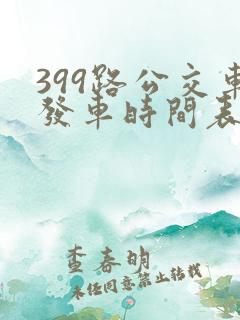 399路公交車
發車時間表
查春明
未经同意禁止转载